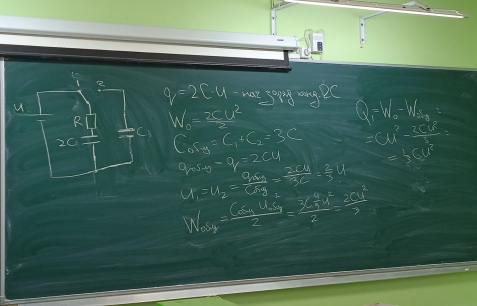 U
R
2C
C
3
q = 2C·U - нач заряд конд. 2C
W₀ = 2CU²/2
Cобщ = C₁ + C₂ = 3C
qобщ = q = 2CU
U₁ = U₂ = qобщ/Cобщ = 2CU/3C = 2/3 U
Wобщ = Cобщ Uобщ²/2 = 3C 4/9 U²/2 = 2CU²/3
Q₁ = W₀ - Wобщ =
= CU² - 2CU²/3 =
= 1/3 CU²